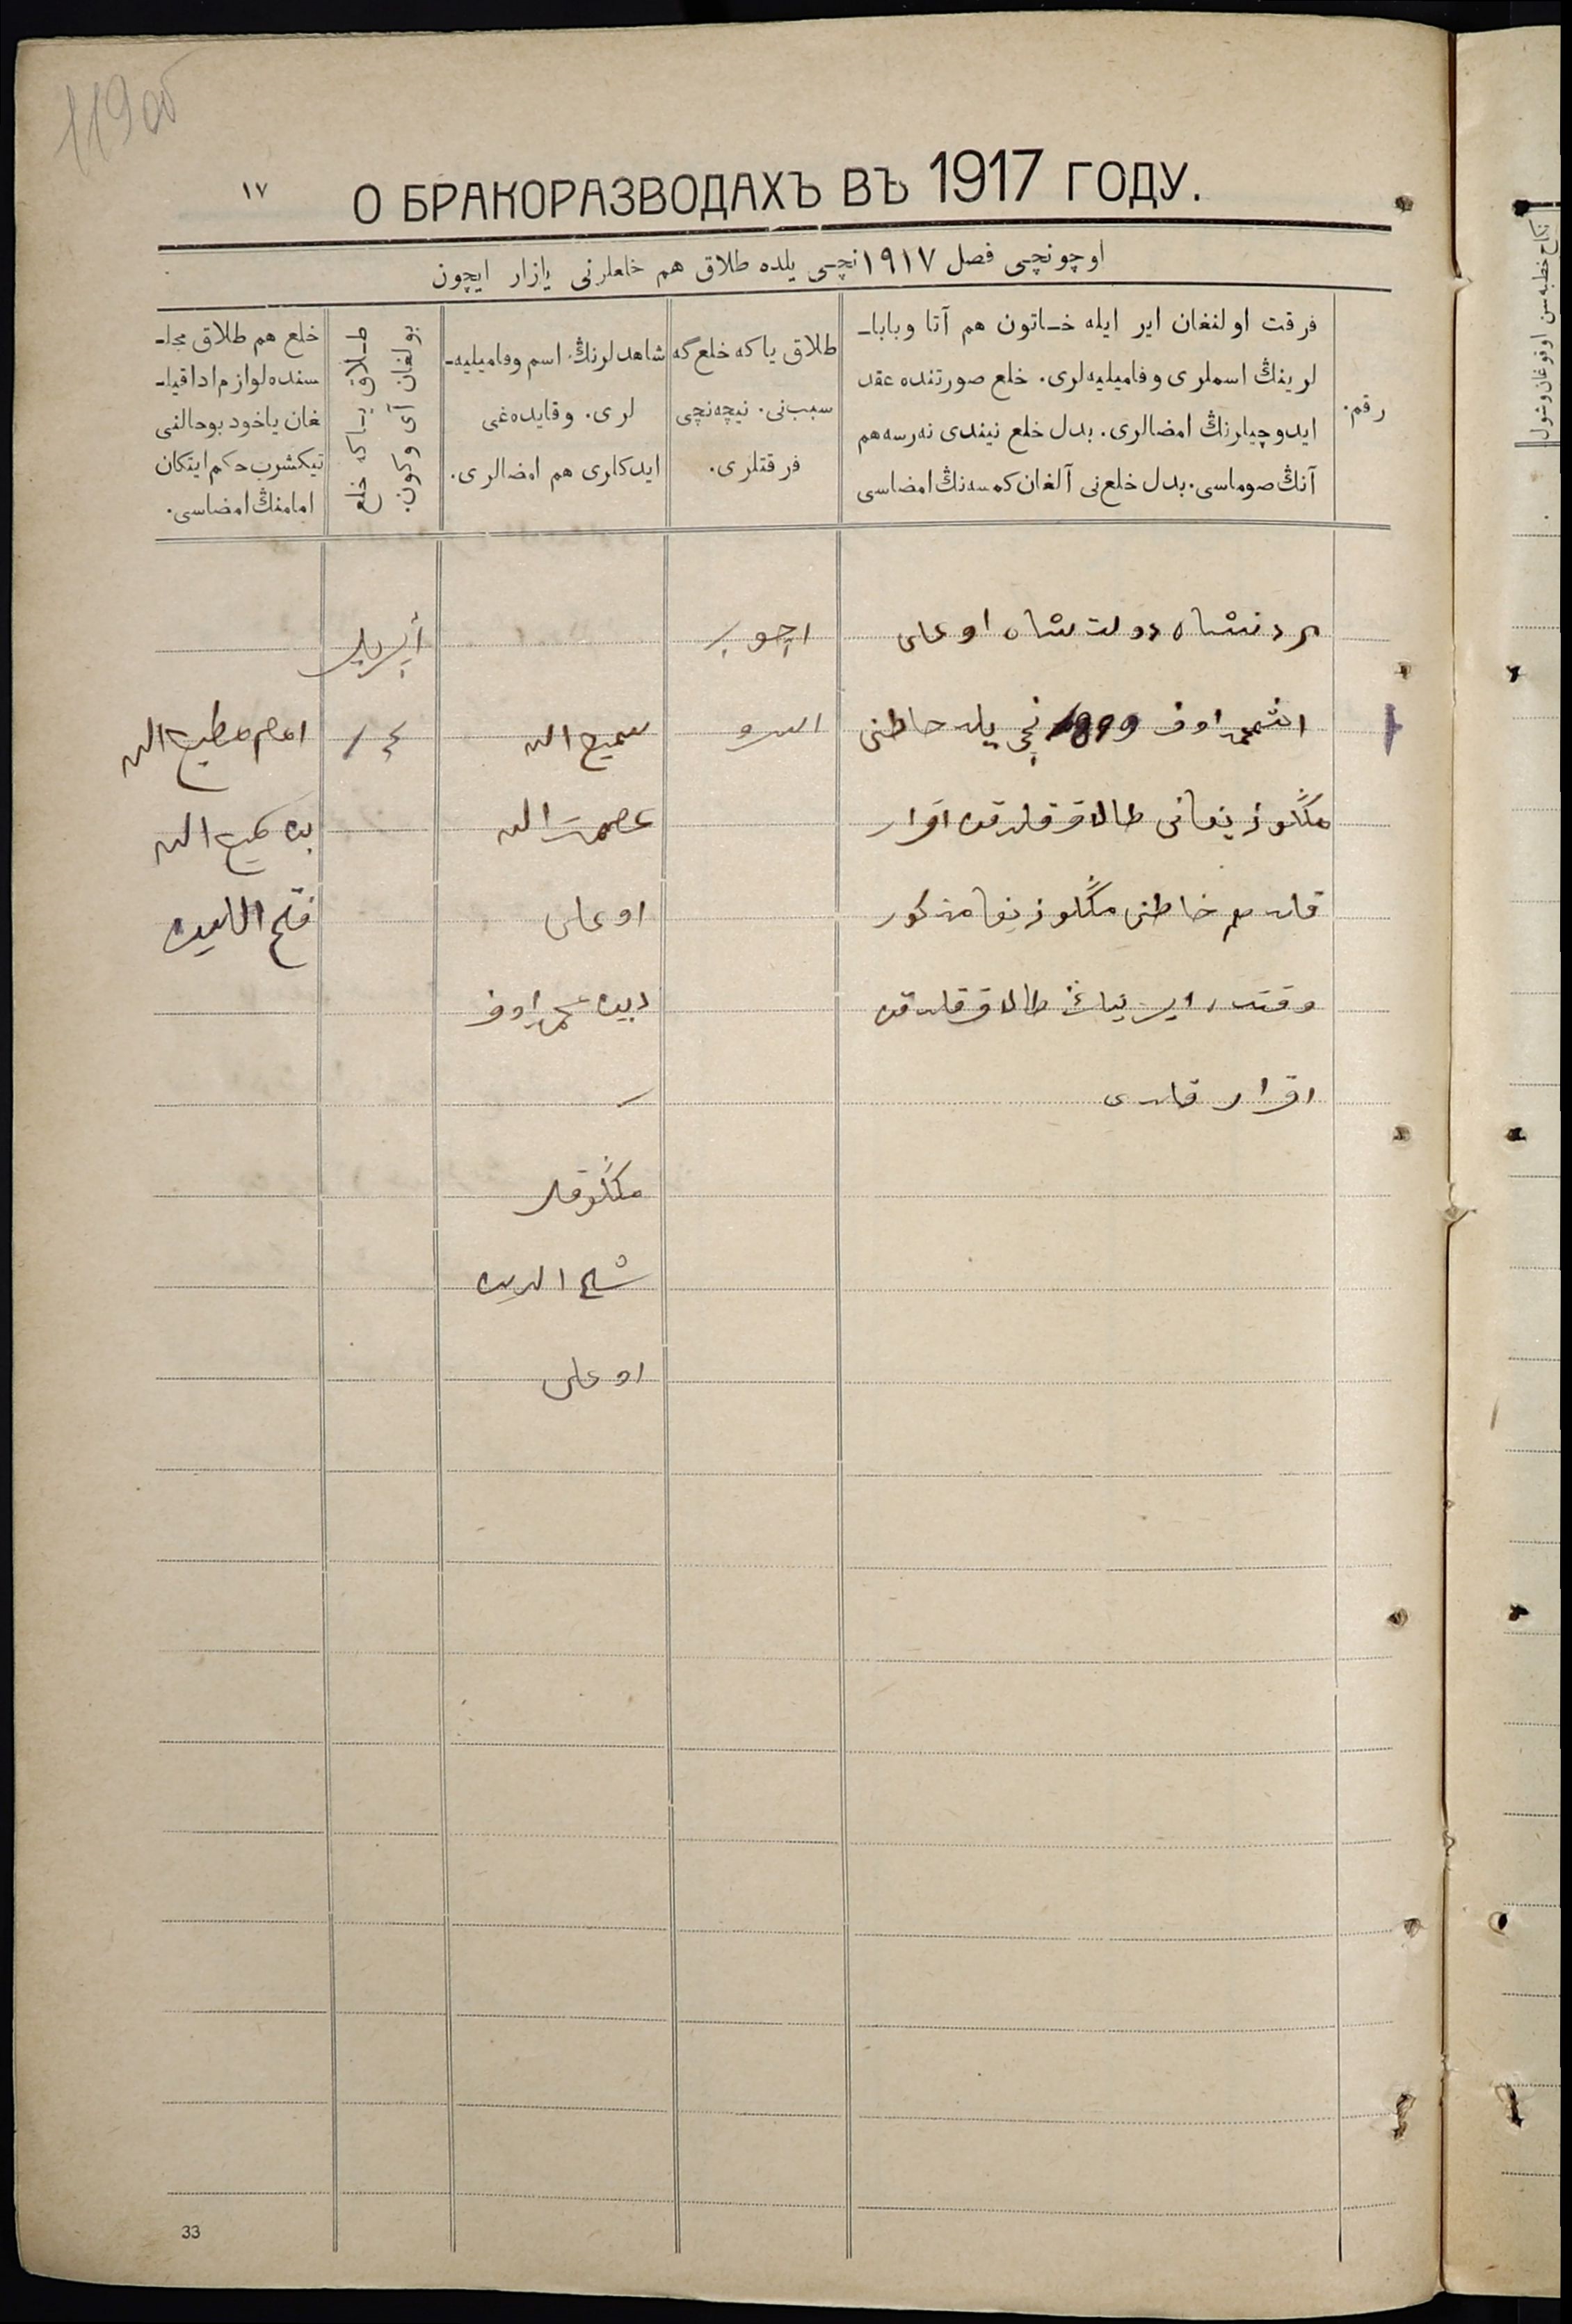 119 об
١٧
О БРАКОРАЗВОДАХЪ ВЪ 1917 ГОДУ.
اوچونچی فصل ١٩١٧ نچی یلده طلاق هم خلعلرنی یازار ایچون
رقم.
فرقت اولنغان ایر ایله خاتون هم آتا وبابا-
لرینڭ اسملری وفامیلیه‌لری. خلع صورتنده عقد
ایدوچیلرنڭ امضالری. بدل خلع نیندی نه‌رسه هم
آنڭ صوماسی. بدل خلع‌نی آلغان کمسه‌نڭ امضاسی
طلاق یاکه خلع گه
سبب‌نی. نیچه‌نچی
فرقتلری.
شاهدلرنڭ اسم وفامیلیه-
لری. وقایده‌غی
ایدکلری هم امضالری.
طلاق یاکه خلع
بولغان آی وکون.
خلع هم طلاق مجلـ
سنده لوازم ادا قیلـ
غان یاخود بو حالنی
تیکشرب حکم ایتکان
امامنڭ امضاسی.
دولتشاه اوغلی
اوف 1899 نچی یلده خاطنی
منڭلوزیفانی طالاق قلدقن اقرار
قلدم هم خاطنی منڭلوزیفا مذکور
وقتده ایرینڭ طالاق قلدقن
اقرار قلدی
اچو
سمیع الله
عصمت الله
اوغلی
اوف
منڭلوقل
شیخ الدین
اوغلی
أپریل
١٤
امام مطیع الله
بن سمیع الله
فتح
نکاح خطبه‌سن اوقوغان وشول
33